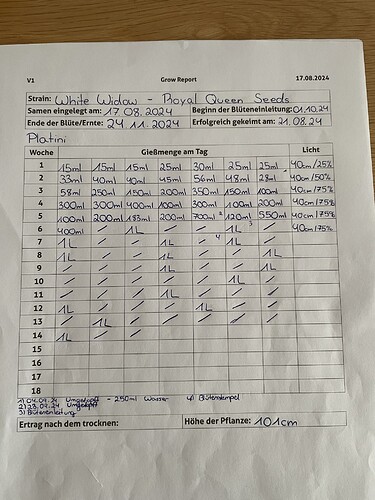 V1 Grow Report 17.08.2024
Strain: White Widow - Royal Queen Seeds
Samen eingelegt am: 17.08.2024 Beginn der Blüteneinleitung: 01.10.24
Ende der Blüte/Ernte: 24.11.2024 Erfolgreich gekeimt am: 21.08.24
Platini
Woche Gießmenge am Tag Licht
1 15ml 15ml 15ml 25ml 30ml 25ml 25ml 40cm/25%
2 33ml 40ml 40ml 45ml 56ml 48ml 28ml 40cm/50%
3 58ml 250ml 150ml 200ml 350ml 150ml 100ml 40cm/75%
4 300ml 300ml 400ml 100ml 300ml 100ml 200ml 40cm/75%
5 100ml 200ml 183ml 200ml 700ml 2 120ml 550ml 40cm/75%
6 400ml / 1L / / 1L 3 / 40cm/75%
7 1L / / 1L / 4 1L /
8 1L / / 1L / / 1L
9 / / / / / / 1L
10 / / / / / 1L /
11 / / / 1L / / /
12 1L / / / 1L / /
13 / 1L / / / / /
14 1L / /
15
16
17
18
1) 04.09.24 Umgetopft - 250ml Wasser 4) Blütenstempel
2) 23.09.24 Umgetopft
3) Blüteneinleitung
Ertrag nach dem trocknen: Höhe der Pflanze: 101cm